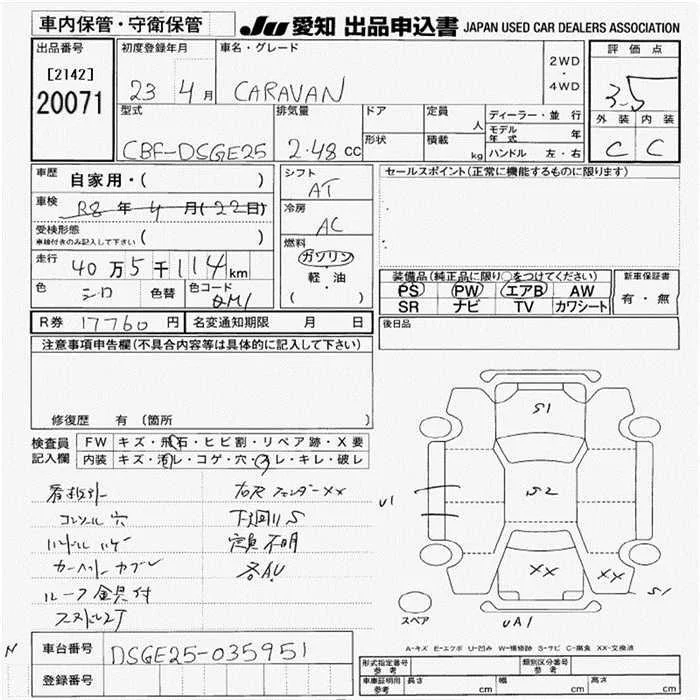 車内保管・守衛保管
JU 愛知 出品申込書 JAPAN USED CAR DEALERS ASSOCIATION
出品番号
[2142]
20071
初度登録年月
23 4月
車名・グレード
CARAVAN
2WD
・
4WD
評価点
3.5
外装 内装
C C
型式
CBF-DSGE25
排気量
2.48cc
ドア
形状
定員
人
積載
kg
ディーラー・並行
モデル年式 年
ハンドル 左・右
車歴
自家用・( )
車検
R8年4月(22日)
受検形態
車検付きのみ記入して下さい ( )
走行
40万5千114km
色
シロ
色替
色コード
QM1
シフト
AT
冷房
AC
燃料
ガソリン
・
軽・油
( )
セールスポイント(正常に機能するものに限ります)
装備品(純正品に限り○をつけてください)
PS PW エアB AW
SR ナビ TV カワシート
新車保証書
有・無
後日品
R券 17760円
名変通知期限 月 日
注意事項申告欄(不具合内容等は具体的に記入して下さい)
修復歴 有(箇所 )
検査員
記入欄
FW キズ・飛石・ヒビ割・リペア跡・X要
内装 キズ・汚レ・コゲ・穴・スレ・キレ・破レ
コンソール穴
ハンドルハゲ
ルーフ金具付
右Rフェンダーxx
下廻りS
定員不明
各A.U
S1
S2
U1
XX
XX
S1
UA1
スペア
A-キズ E-エクボ U-凹み W-補修跡 S-サビ C-腐食 XX-交換済
N
車台番号
DSGE25-035951
登録番号
形式指定番号
参考
類別区分番号
参考
車庫証明用
参考
長さ cm
幅 cm
高さ cm